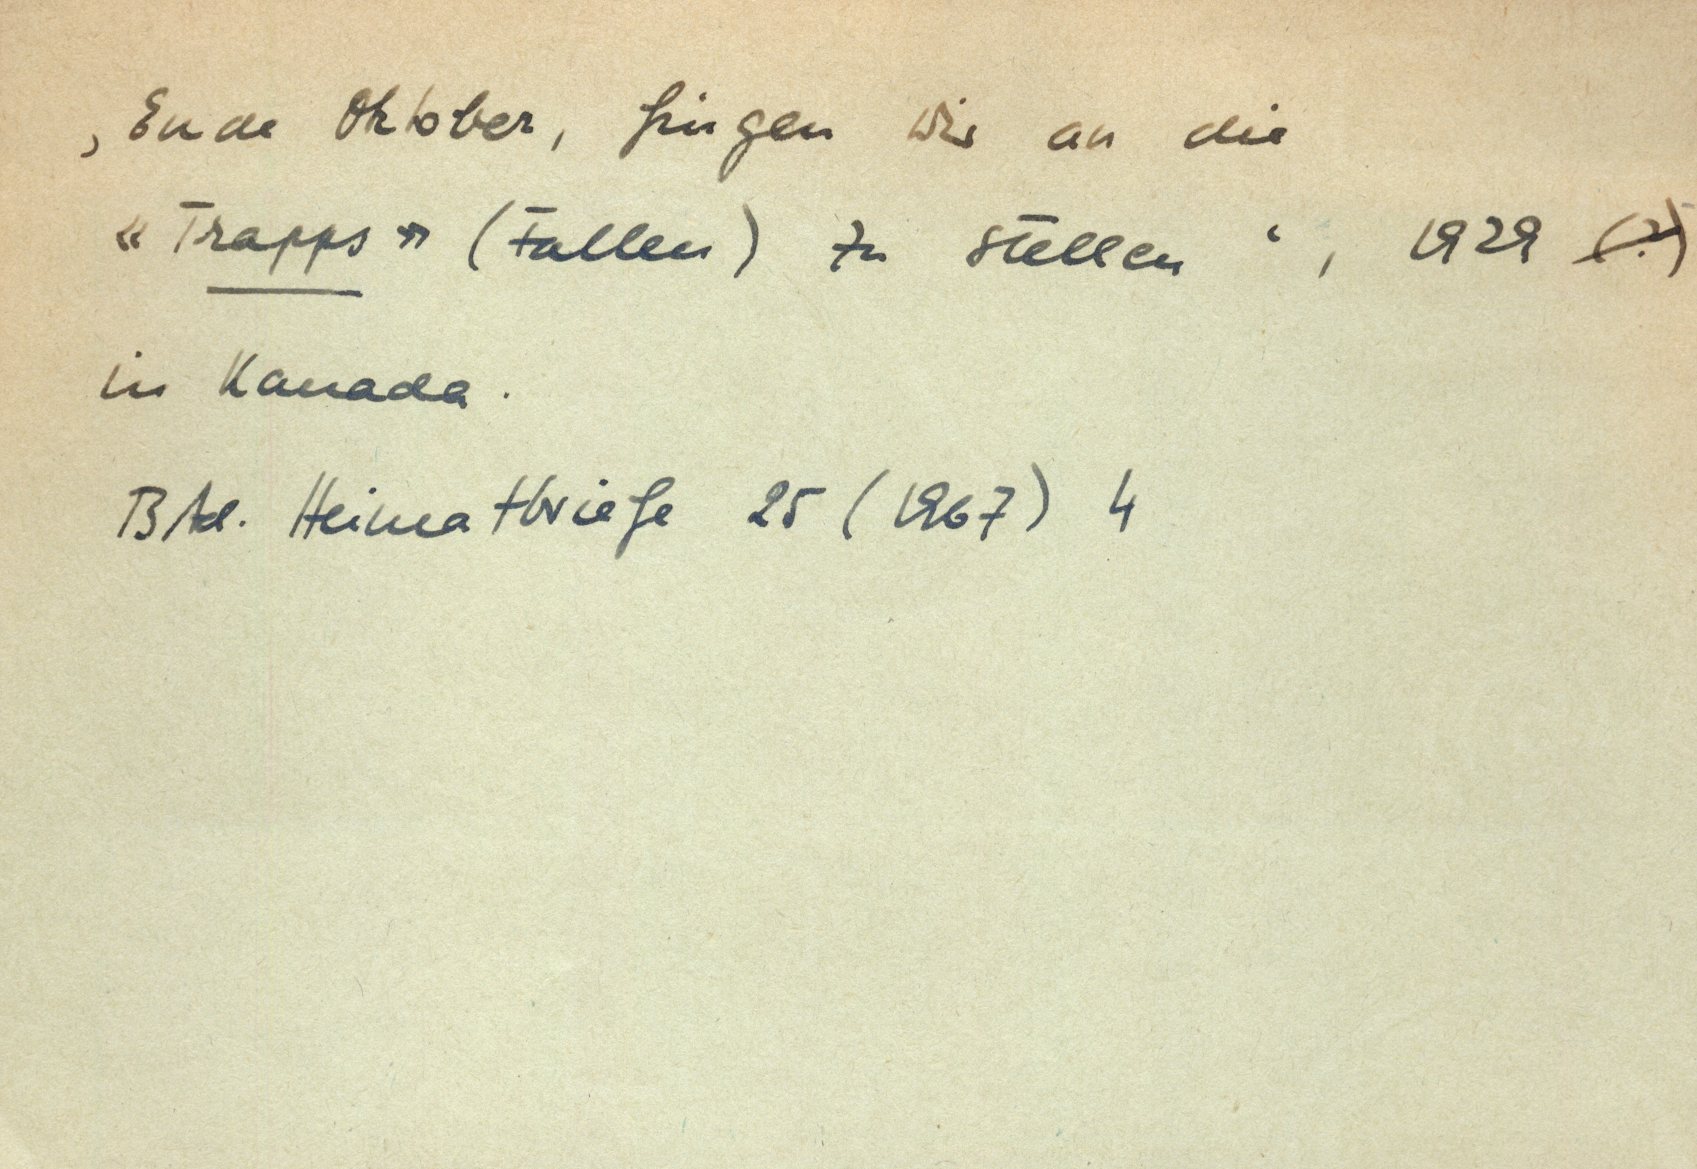 ‚Ende Oktober, fingen wir an die
«Trapps» (Fallen) zu stellen‘, 1929 (?)
in Kanada.
Bld. Heimatbriefe 25 (1967) 4